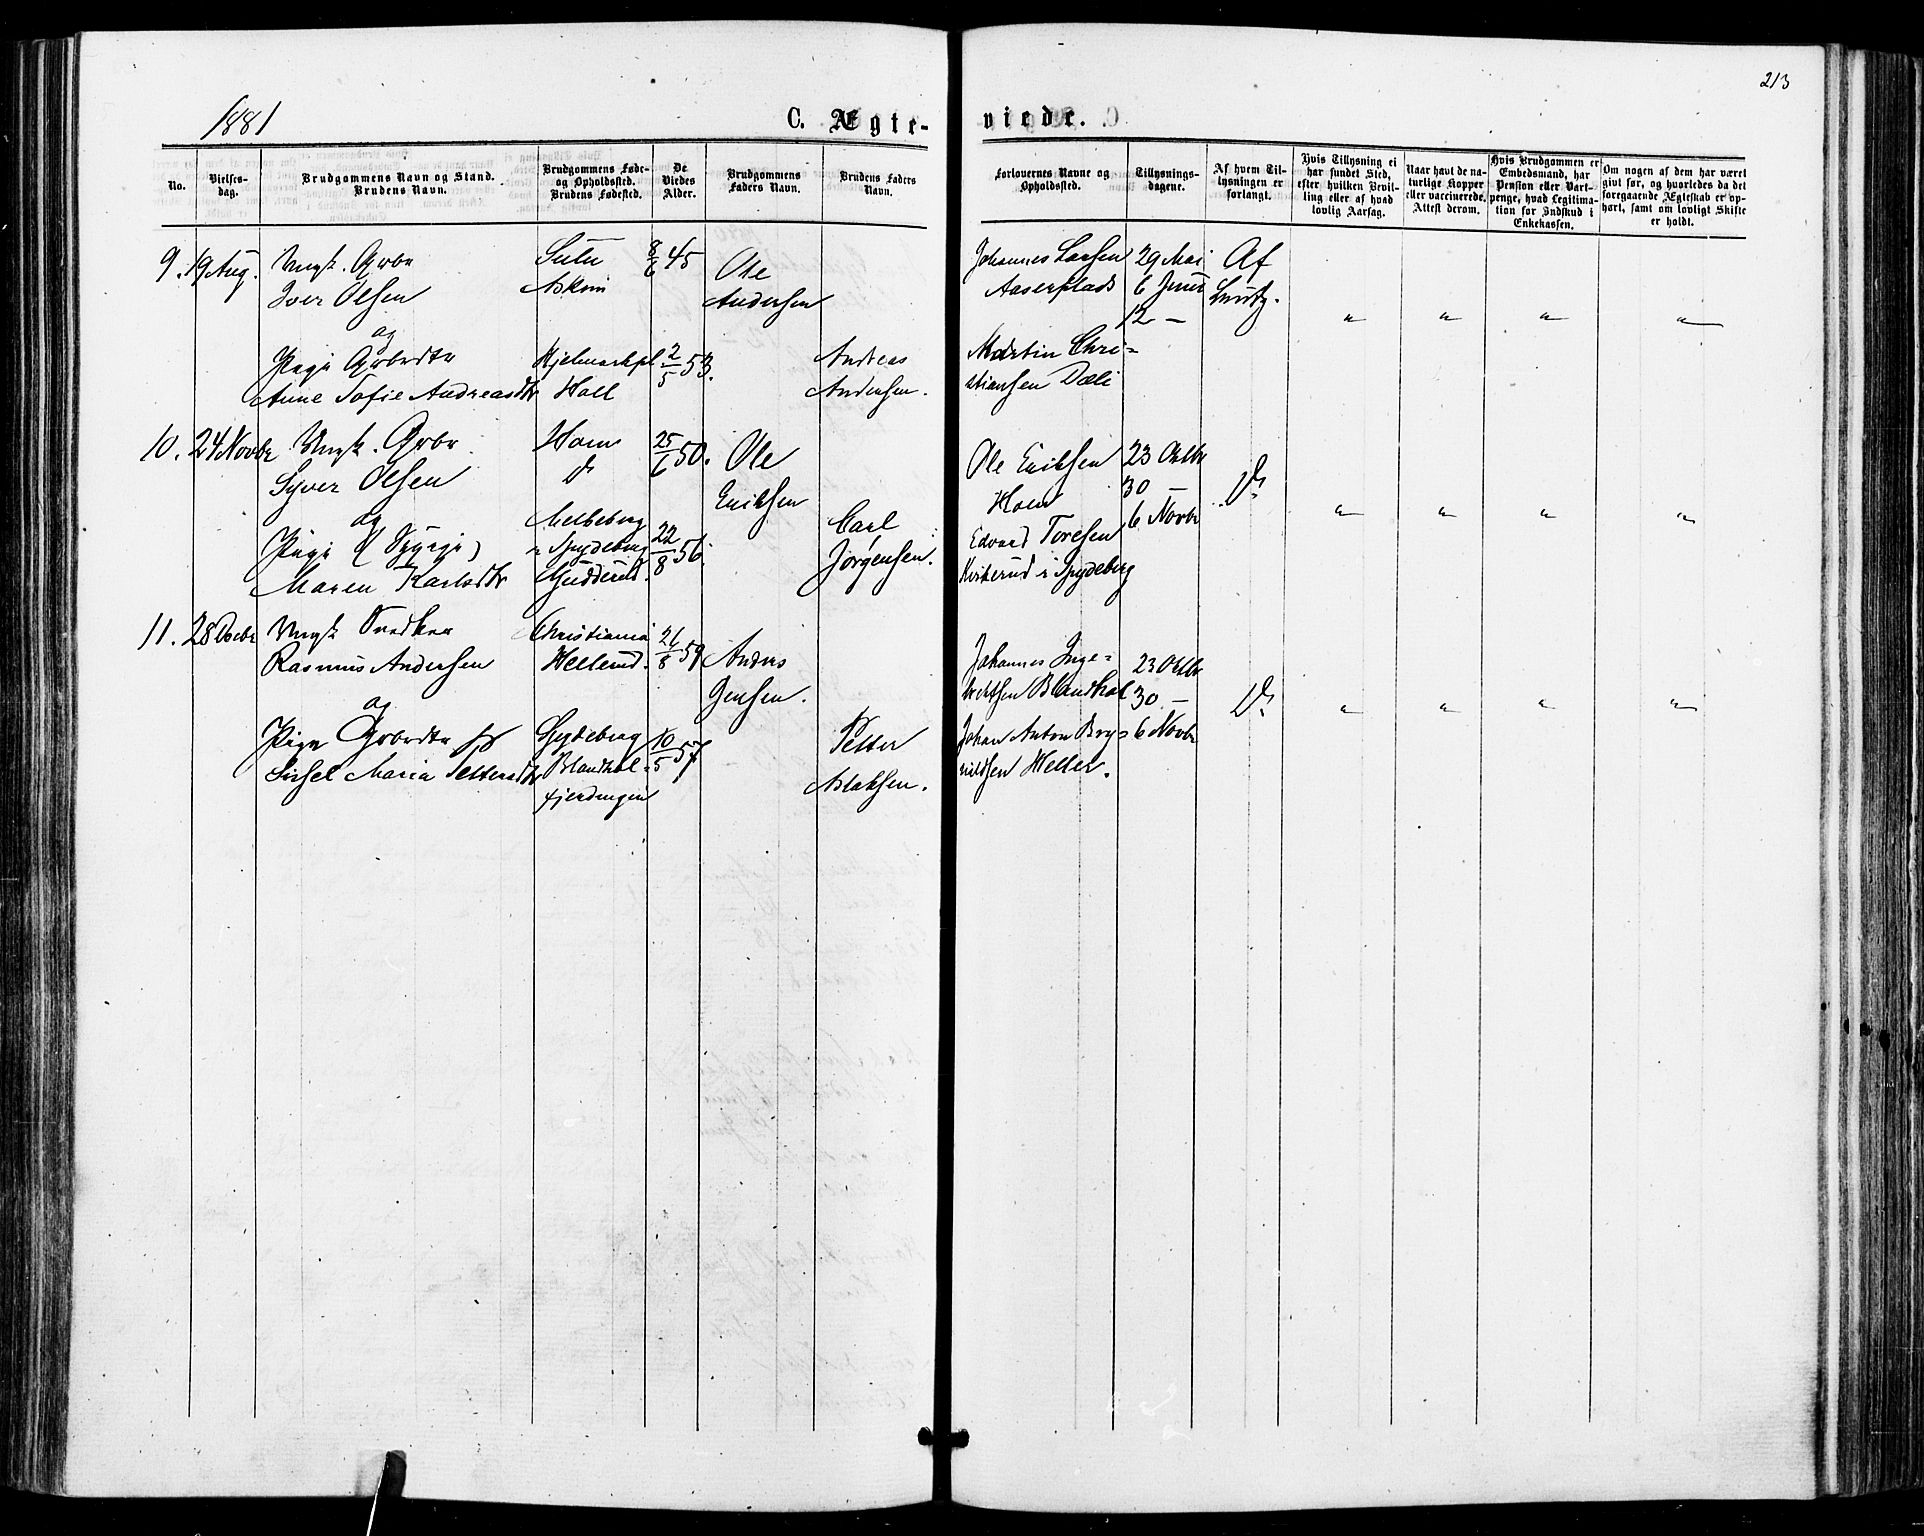 213
1881
C. Ægte-
viede.
No.
Vielses-
dag.
Brudgommens Navn og Stand.
Brudens Navn.
Brudgommens Føde-
og Opholdssted.
Brudens Fødested.
De
Viedes
Alder.
Brudgommens
Faders Navn.
Brudens Faders
Navn.
Forlovernes Navne og
Opholdssted.
Tillysnings-
dagene.
Af hvem Til-
lysningen er
forlangt.
Hvis Tillysning ei
har fundet Sted,
efter hvilken Bevil-
ling eller af hvad
lovlig Aarsag.
Naar havt de na-
turlige Kopper
eller vaccinerede.
Attest derom.
Hvis Brudgommen er
Embedsmand, har
Pension eller Vart-
penge, hvad Legitima-
tion for Indskud i
Enkekassen.
Om nogen af dem har været
givt før, og hvorledes da det
foregaaende Ægteskab er op-
hørt, samt om lovligt Skifte
er holdt.
9. 19 Aug.
Ungk. Arbr
Iver Olsen
og
Pige Arbrdtr
Anne Sofie Andreasdtr
Askim
Hjelmarkpl
Holl
8/6 45
2/5 53.
Ole
Andersen
Andreas
Andersen.
Johannes Larsen
Aaserplads
Martin Chri=
stiansen Dæli
29 Mai
6 Juni
12 —
Af
" " " "
10. 24 Novbr
Ungk. Arbr
Syver Olsen
og
Pige
Maren Karlsdtr
Hoen
d
i Spydeberg
25/6 50.
22/8 56.
Ole
Eriksen
Carl
Jørgensen.
Ole Eriksen
Hoen
Edvard Toresen
i Spydeberg
23 Oktbr
30 —
6 Novbr
D.
" " " "
11. 28 Decbr
Ungk Snedker
Rasmus Andersen
og
Pige Arbrdtr
Sirsel Maria Pettersdtr
Christiania
Hellerud.
Spydeberg
Blandhol=
fjerdingen
21/8 59
10/5 57
Anders
Jensen.
Petter
Aslaksen.
Johannes Inge=
bretsen Blandhol
Johan Anton Bry=
nildsen Heller.
23 Oktbr
30. —
6 Novbr
D.
" " " "